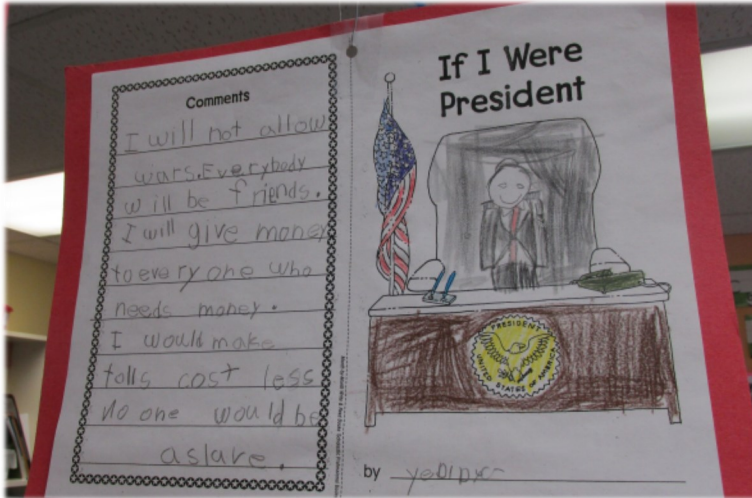 Comments
I will not allow
wars.Everybody
will be friends.
I will give money
to everyone who
needs money.
I would make
tolls cost less
no one would be
a slave.
If I Were
President
PRESIDENT
UNITED STATES OF AMERICA
by